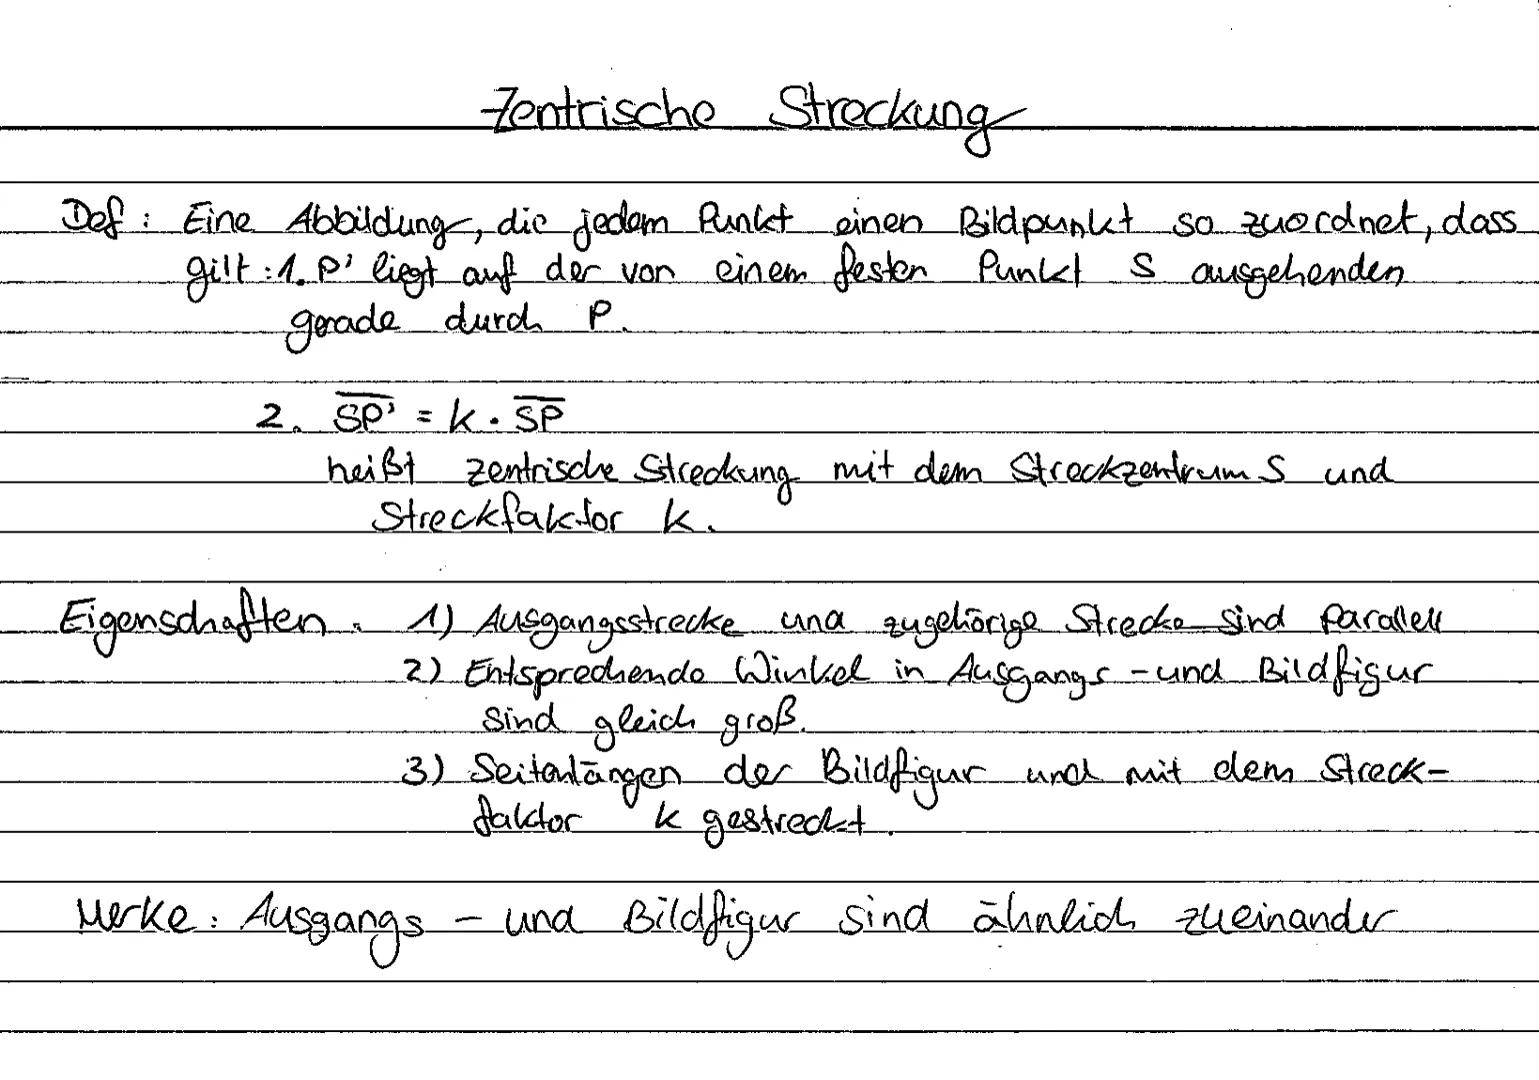 Zentrische Streckung
Def: Eine Abbildung, die jedem Punkt einen Bildpunkt so zuordnet, dass
gilt: 1. P' liegt auf der von einem festen Punkt S ausgehenden
gerade durch P.
2. S̅P̅'̅ = k · S̅P̅
heißt zentrische Streckung mit dem Streckzentrum S und
Streckfaktor k.
Eigenschaften. 1) Ausgangsstrecke und zugehörige Strecke sind parallell
2) Entsprechende Winkel in Ausgangs - und Bildfigur
sind gleich groß.
3) Seitenlängen der Bildfigur und mit dem Streck-
faktor k gestreckt.
Merke: Ausgangs - und Bildfigur sind ähnlich zueinander